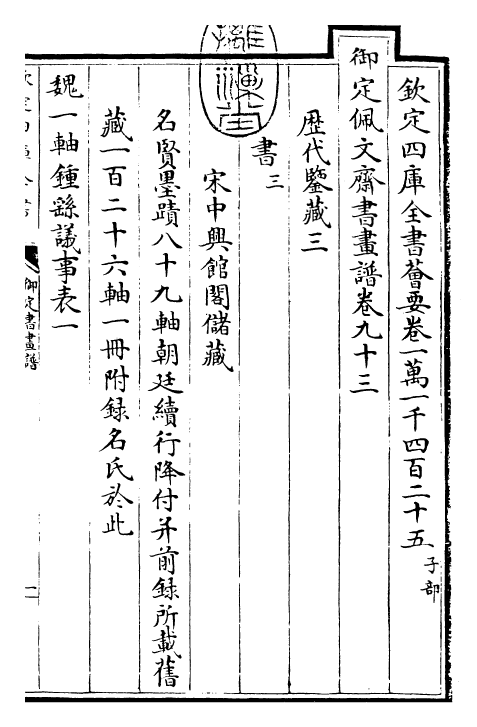 欽定四庫全書薈要卷一萬一千四百二十五 子部
御定佩文齋書畫譜卷九十三
歴代鑒藏三
書三
宋中興館閣儲藏
名賢墨蹟八十九軸朝廷續行降付并前録所載舊
藏一百二十六軸一冊附録名氏於此
魏一軸鍾繇議事表一
御定書畫譜